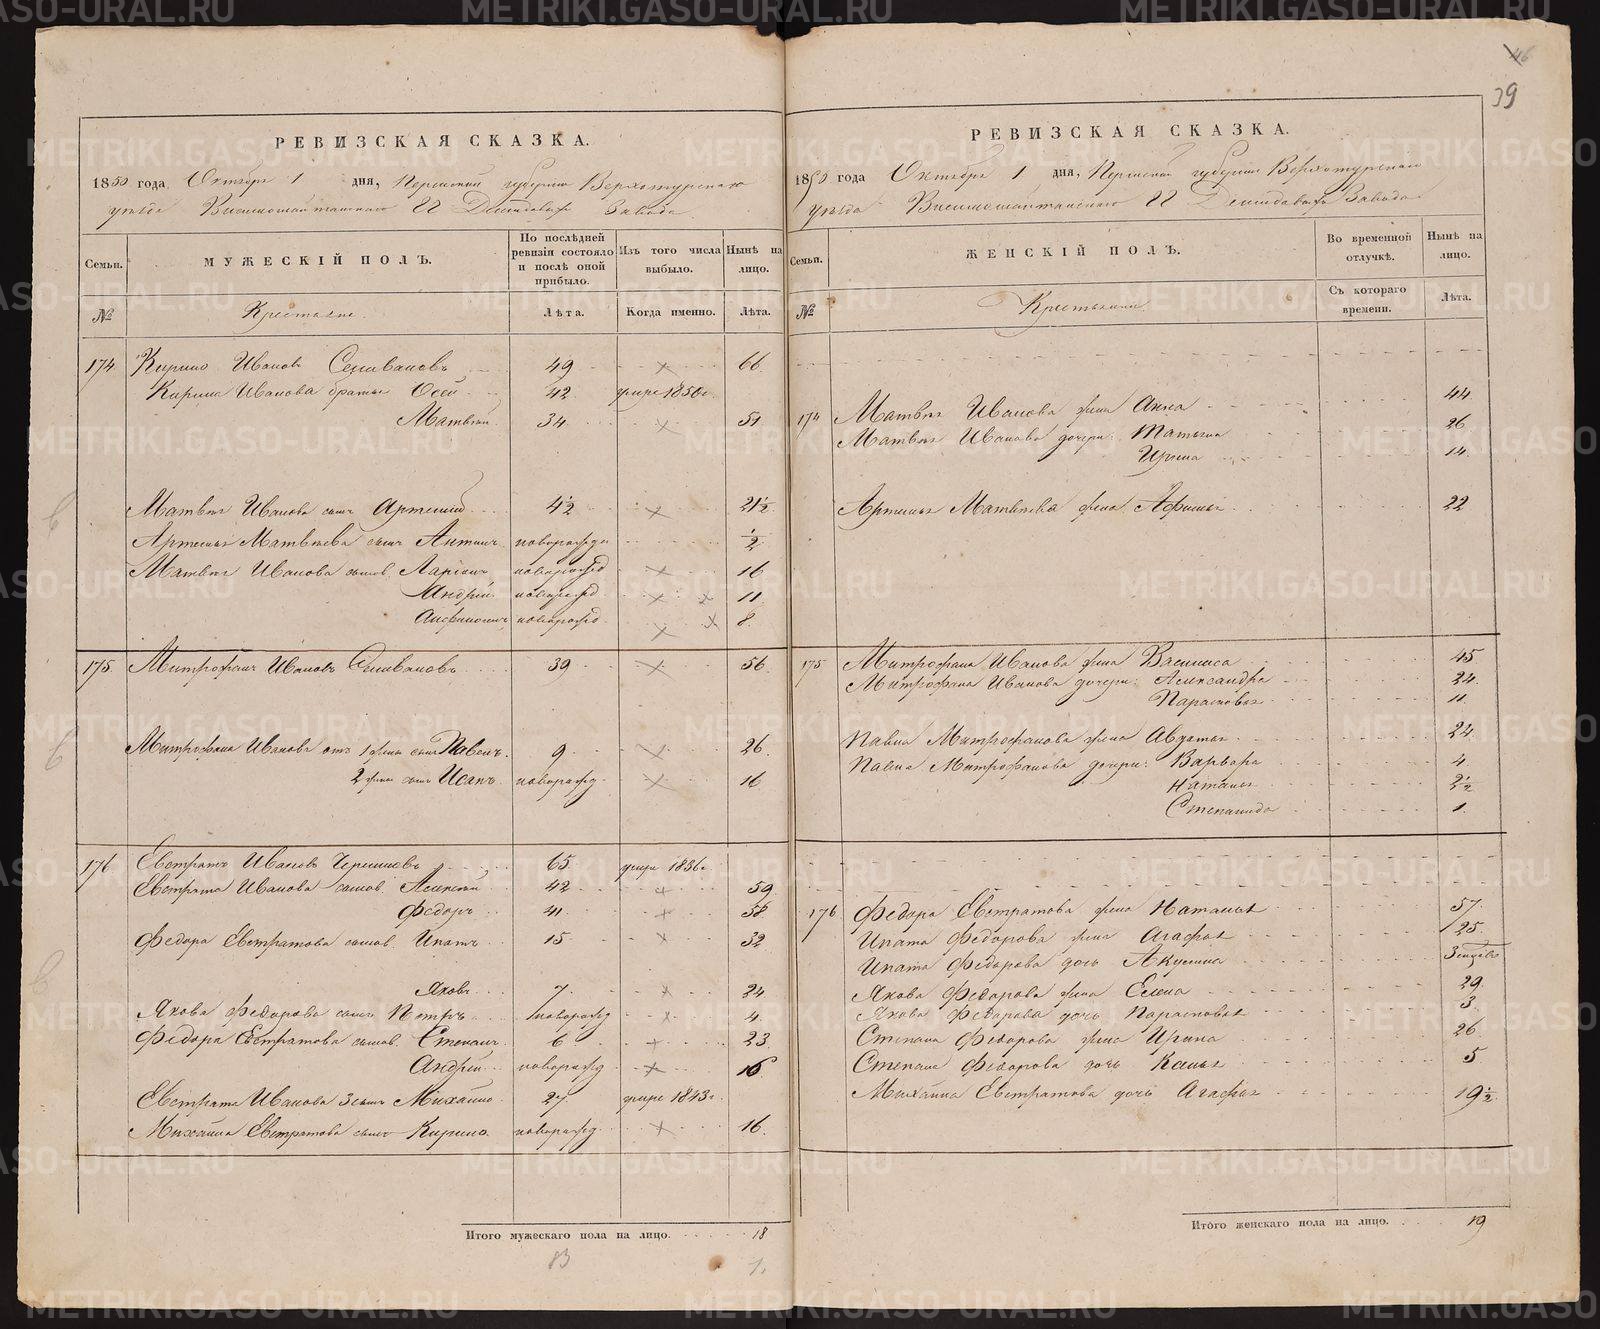 46
39
РЕВИЗСКАЯ СКАЗКА.
1850 года Октября 1 дня, Пермской губернии Верхотурскаго
уѣзда Висимошайтанскаго ГГ Демидовыхъ Завода
Семьи.
МУЖЕСКІЙ ПОЛЪ.
По послѣдней ревизіи состояло и послѣ оной прибыло.
Изъ того числа выбыло.
Нынѣ на лицо.
№
Крестьяне.
Лѣта.
Когда именно.
Лѣта.
174 Кирило Ивановъ Селивановъ 49 66
Кирила Иванова братья Осей 42 умре 1850г.
Матвѣй 34 51
Матвѣя Иванова сынъ Артемій 4½ 21½
Артемья Матвѣева сынъ Антипъ новорожд. ½
Матвѣя Иванова сынов. Ларіонъ новорожд 16
Андрей новорожд 11
новорожд 8
175 Митрофанъ Ивановъ Селивановъ 39 56
Митрофана Иванова отъ 1 жены сынъ Павелъ 9 26
2 жены сынъ Исакъ новорожд 16
176 Евстратъ Ивановъ 65 умре 1836г
Евстрата Иванова сынов. Алексѣй 42 59
Федоръ 41 58
Федора Евстратова сынов. Ипатъ 15 32
Яковъ 7 24
Якова Федорова сынъ Петръ новорожд 4
Федора Евстратова сынов. Степанъ 6 23
Андрей новорожд 16
Евстрата Иванова 3 сынъ Михайло 27 умре 1843г
Михайла Евстратова сынъ Кирило новорожд 16
Итого мужескаго пола на лицо. 18
83
1.
РЕВИЗСКАЯ СКАЗКА.
1850 года Октября 1 дня, Пермской губерніи Верхотурскаго
уѣзда Висимошайтанскаго ГГ Демидовыхъ Завода
Семьи.
ЖЕНСКІЙ ПОЛЪ.
Во временной отлучкѣ.
Нынѣ на лицо.
№
Крестьянки
Съ котораго времени.
Лѣта.
174 Матвѣя Иванова жена Анна 44
Матвѣя Иванова дочери: Татьяна 26
Ирина 14
Артемья Матвѣева жена Афимья 22
175 Митрофана Иванова жена Василиса 45
Митрофана Иванова дочери: Александра 24
Парасковья 11
Павла Митрофанова жена Авдотья 24
Павла Митрофанова дочери: Варвара 4
Наталья 2½
Степанида 1
176 Федора Евстратова жена Наталья 57
Ипата Федорова жена Агафья 25
Ипата Федорова дочь Акулина 3 мѣсяцовъ
Якова Федорова жена Елена 29
Якова Федорова дочь Парасковья 3
Степана Федорова жена Ирина 26
Степана Федорова дочь 5
Михайла Евстратова дочь Агафья 19½
Итого женскаго пола на лицо. 19
METRIKI.GASO-URAL.RU